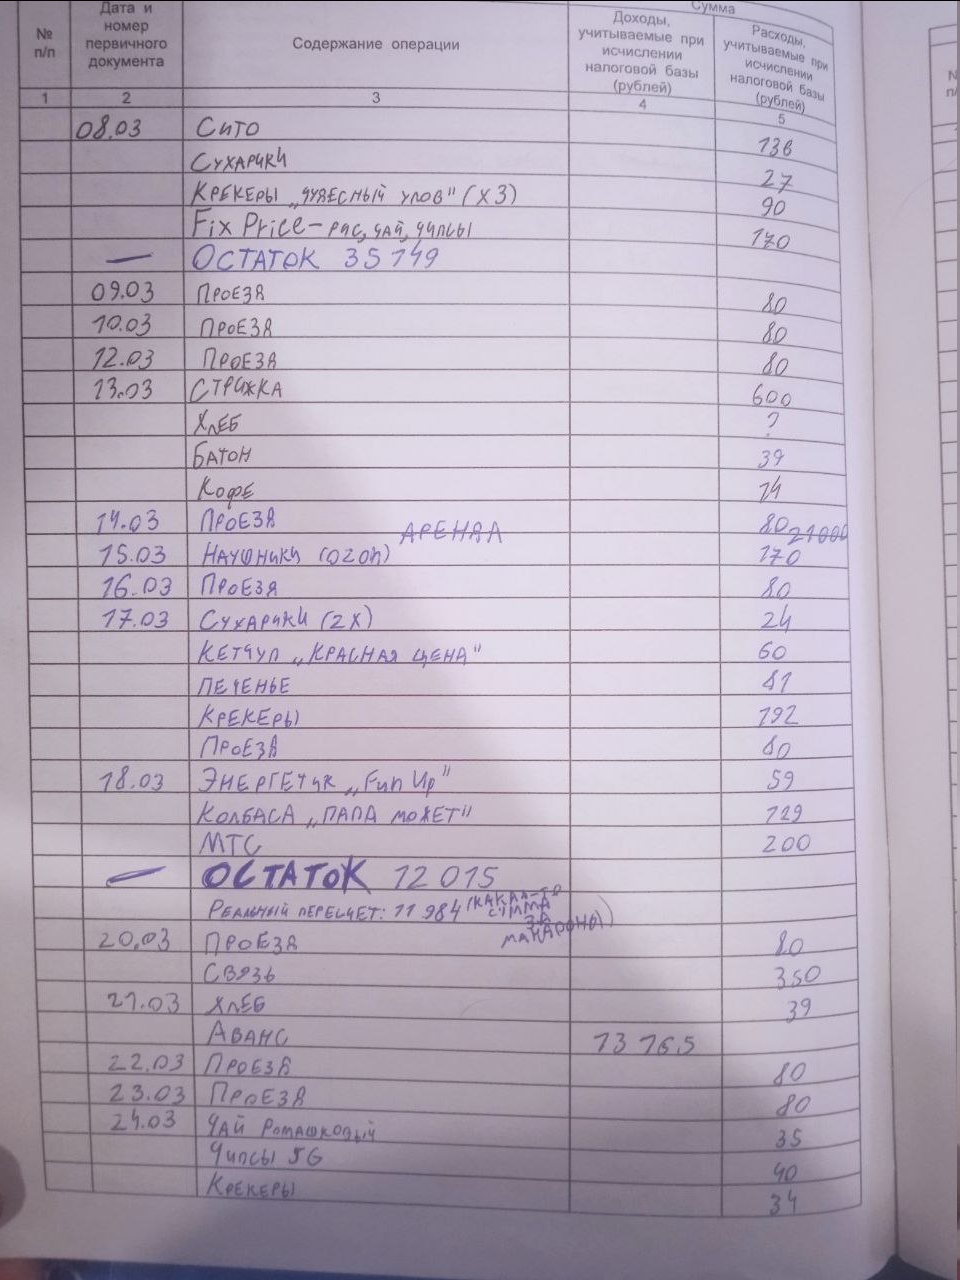 Сумма
№ п/п Дата и номер первичного документа Содержание операции Доходы, учитываемые при исчислении налоговой базы (рублей) Расходы, учитываемые при исчислении налоговой базы (рублей)
1 2 3 4 5
08.03 Сито 136
Сухарики 27
Крекеры „Чудесный улов" (х3) 90
Fix Price – рис, чай, чипсы 170
— Остаток 35 149
09.03 Проезд 80
10.03 Проезд 80
12.03 Проезд 80
13.03 Стрижка 600
Хлеб ?
Батон 39
Кофе 14
14.03 Проезд 80
Аренда 21000
15.03 Наушники (Ozon) 170
16.03 Проезд 80
17.03 Сухарики (2х) 24
Кетчуп „Красная цена" 60
Печенье 81
Крекеры 192
Проезд 80
18.03 Энергетик „Fun Up" 59
Колбаса „Папа может" 129
МТС 200
— Остаток 12 015
Реальный пересчет: 11 984 (какая-то сумма за макароны)
20.03 Проезд 80
Связь 350
21.03 Хлеб 39
Аванс 13 165
22.03 Проезд 80
23.03 Проезд 80
24.03 Чай ромашковый 35
Чипсы 5G 40
Крекеры 34